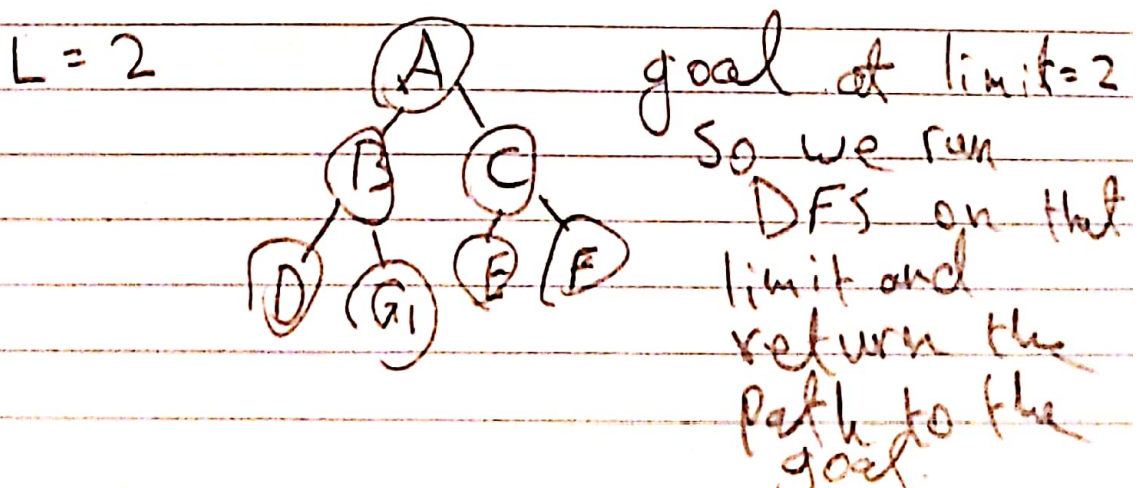 L = 2
A
B C
D G1 E F
goal at limit=2
So we run
DFS on that
limit and
return the
path to the
goal.